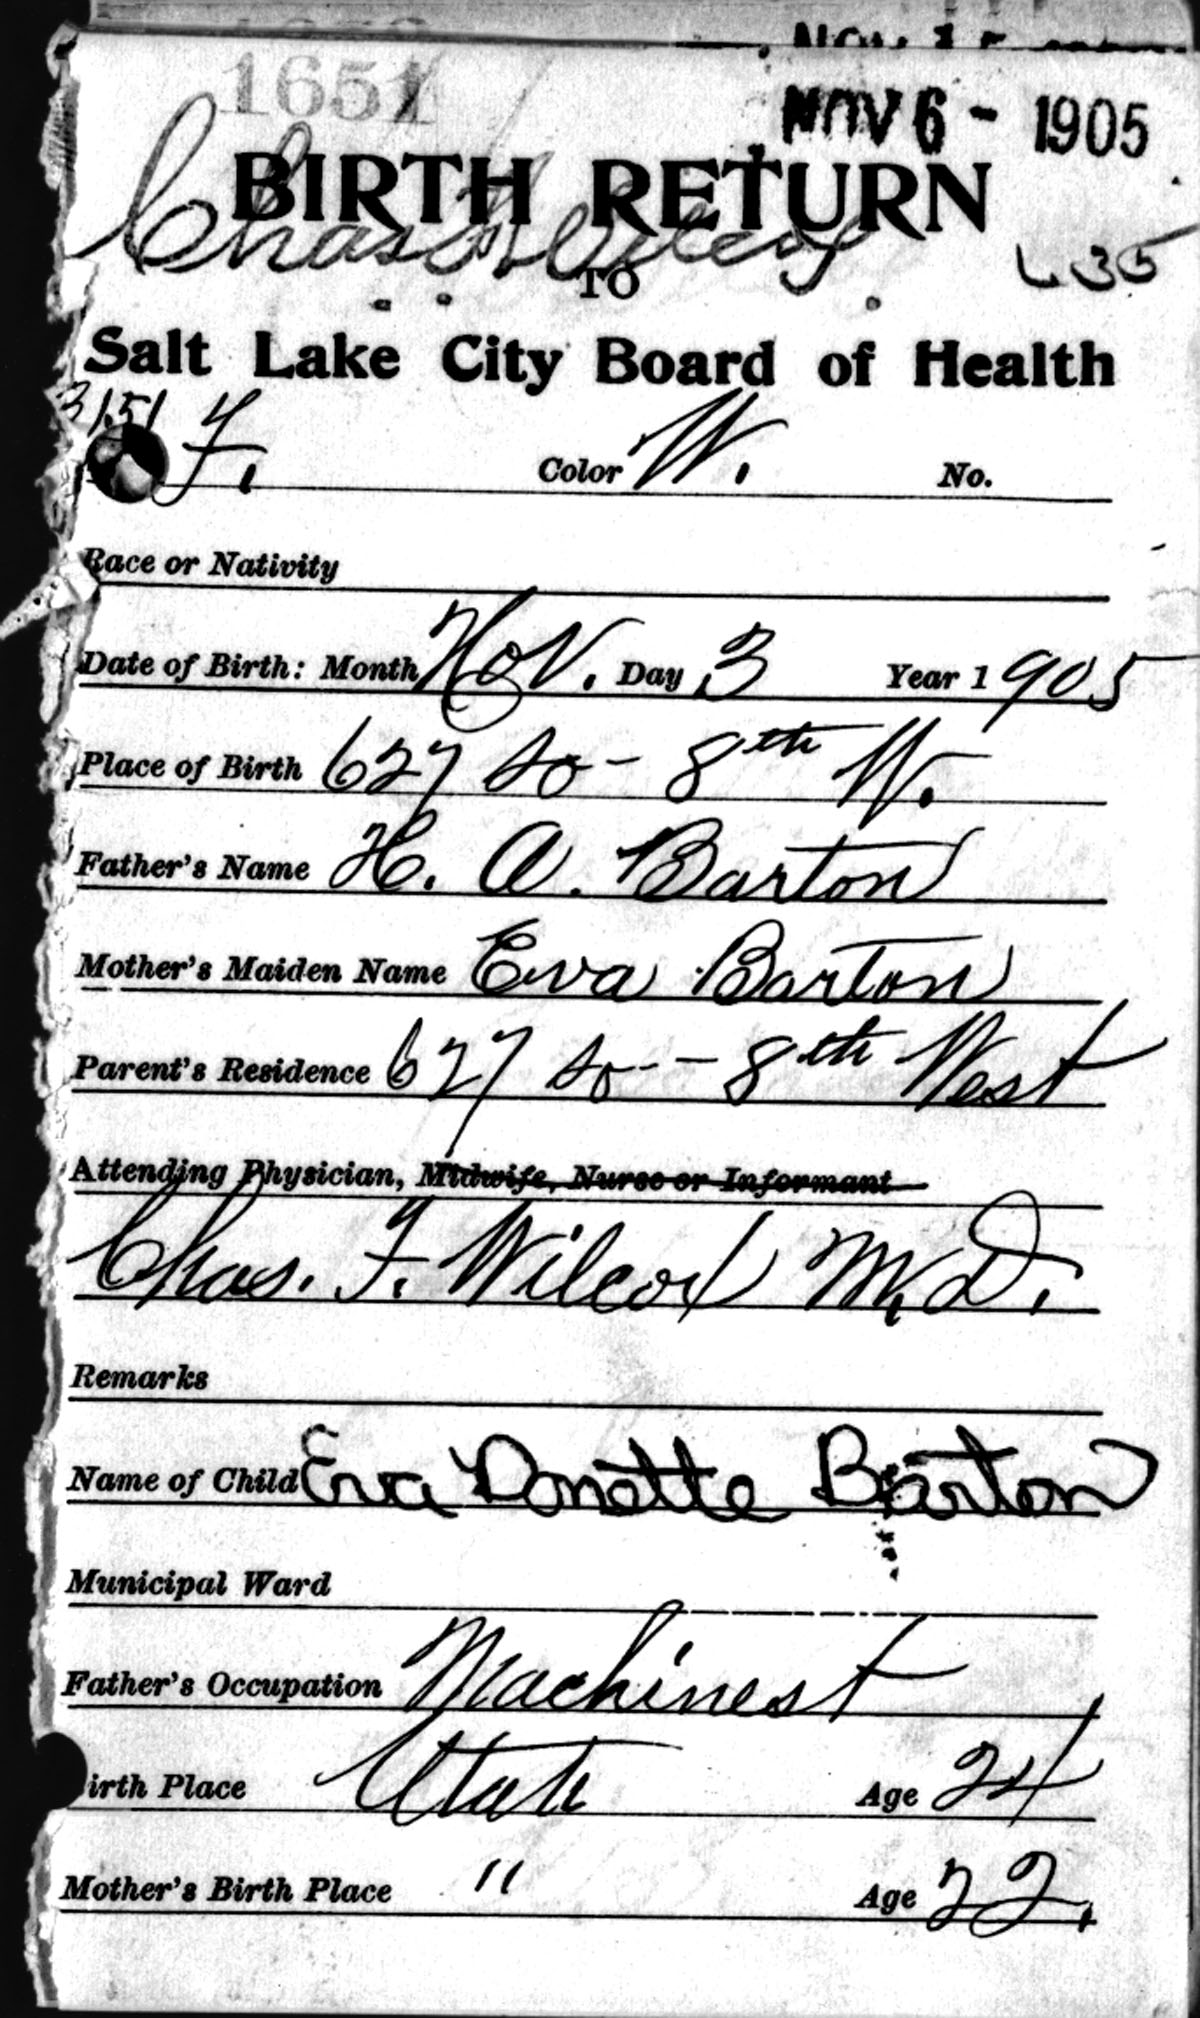 NOV 15
1651
NOV 6 - 1905
BIRTH RETURN
Chas
TO
L35
Salt Lake City Board of Health
3151
F. Color W. No.
Race or Nativity
Date of Birth: Month Nov. Day 3 Year 1 905
Place of Birth 627 So - 8th W.
Father's Name H. A. Barton
Mother's Maiden Name Eva Barton
Parent's Residence 627 So - - 8th West
Attending Physician, Midwife, Nurse or Informant
Chas. F. Wilcox M.D.
Remarks
Name of Child Eva Donette Barton
Municipal Ward
Father's Occupation Machinest
irth Place Utah Age 24
Mother's Birth Place " Age 22.